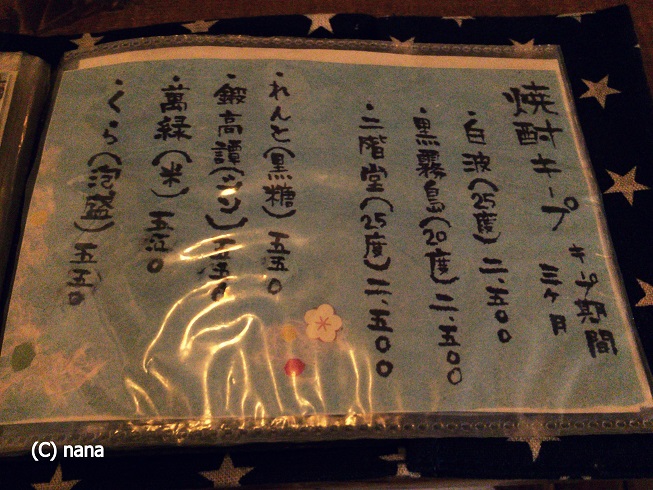 焼酎キープ
キープ期間
三ヶ月
・白波(25度)二、五〇〇
・黒霧島(20度)二、五〇〇
・二階堂(25度)二、五〇〇
・れんと(黒糖)五五〇
・鍛高譚(シソ)五五〇
・萬緑(米)五五〇
・くら(泡盛)五五〇
(C) nana